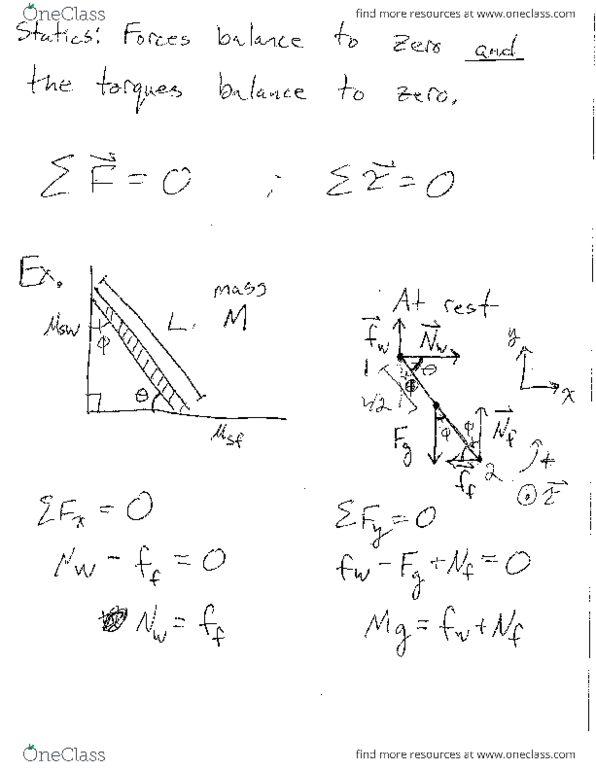 OneClass
find more resources at www.oneclass.com
Statics: Forces balance to zero and
the torques balance to zero.
∑ F⃗ = 0 ; ∑ τ⃗ = 0
Ex.
mass
M
L
μsw
ϕ
θ
μsf
At rest
f⃗w
N⃗w
θ
1
ϕ
L/2
Fg
ϕ
ϕ
N⃗f
f⃗f
2
y
x
+
⊙ τ⃗
∑Fx = 0
Nw - ff = 0
Nw = ff
∑Fy = 0
fw - Fg + Nf = 0
Mg = fw + Nf
OneClass
find more resources at www.oneclass.com